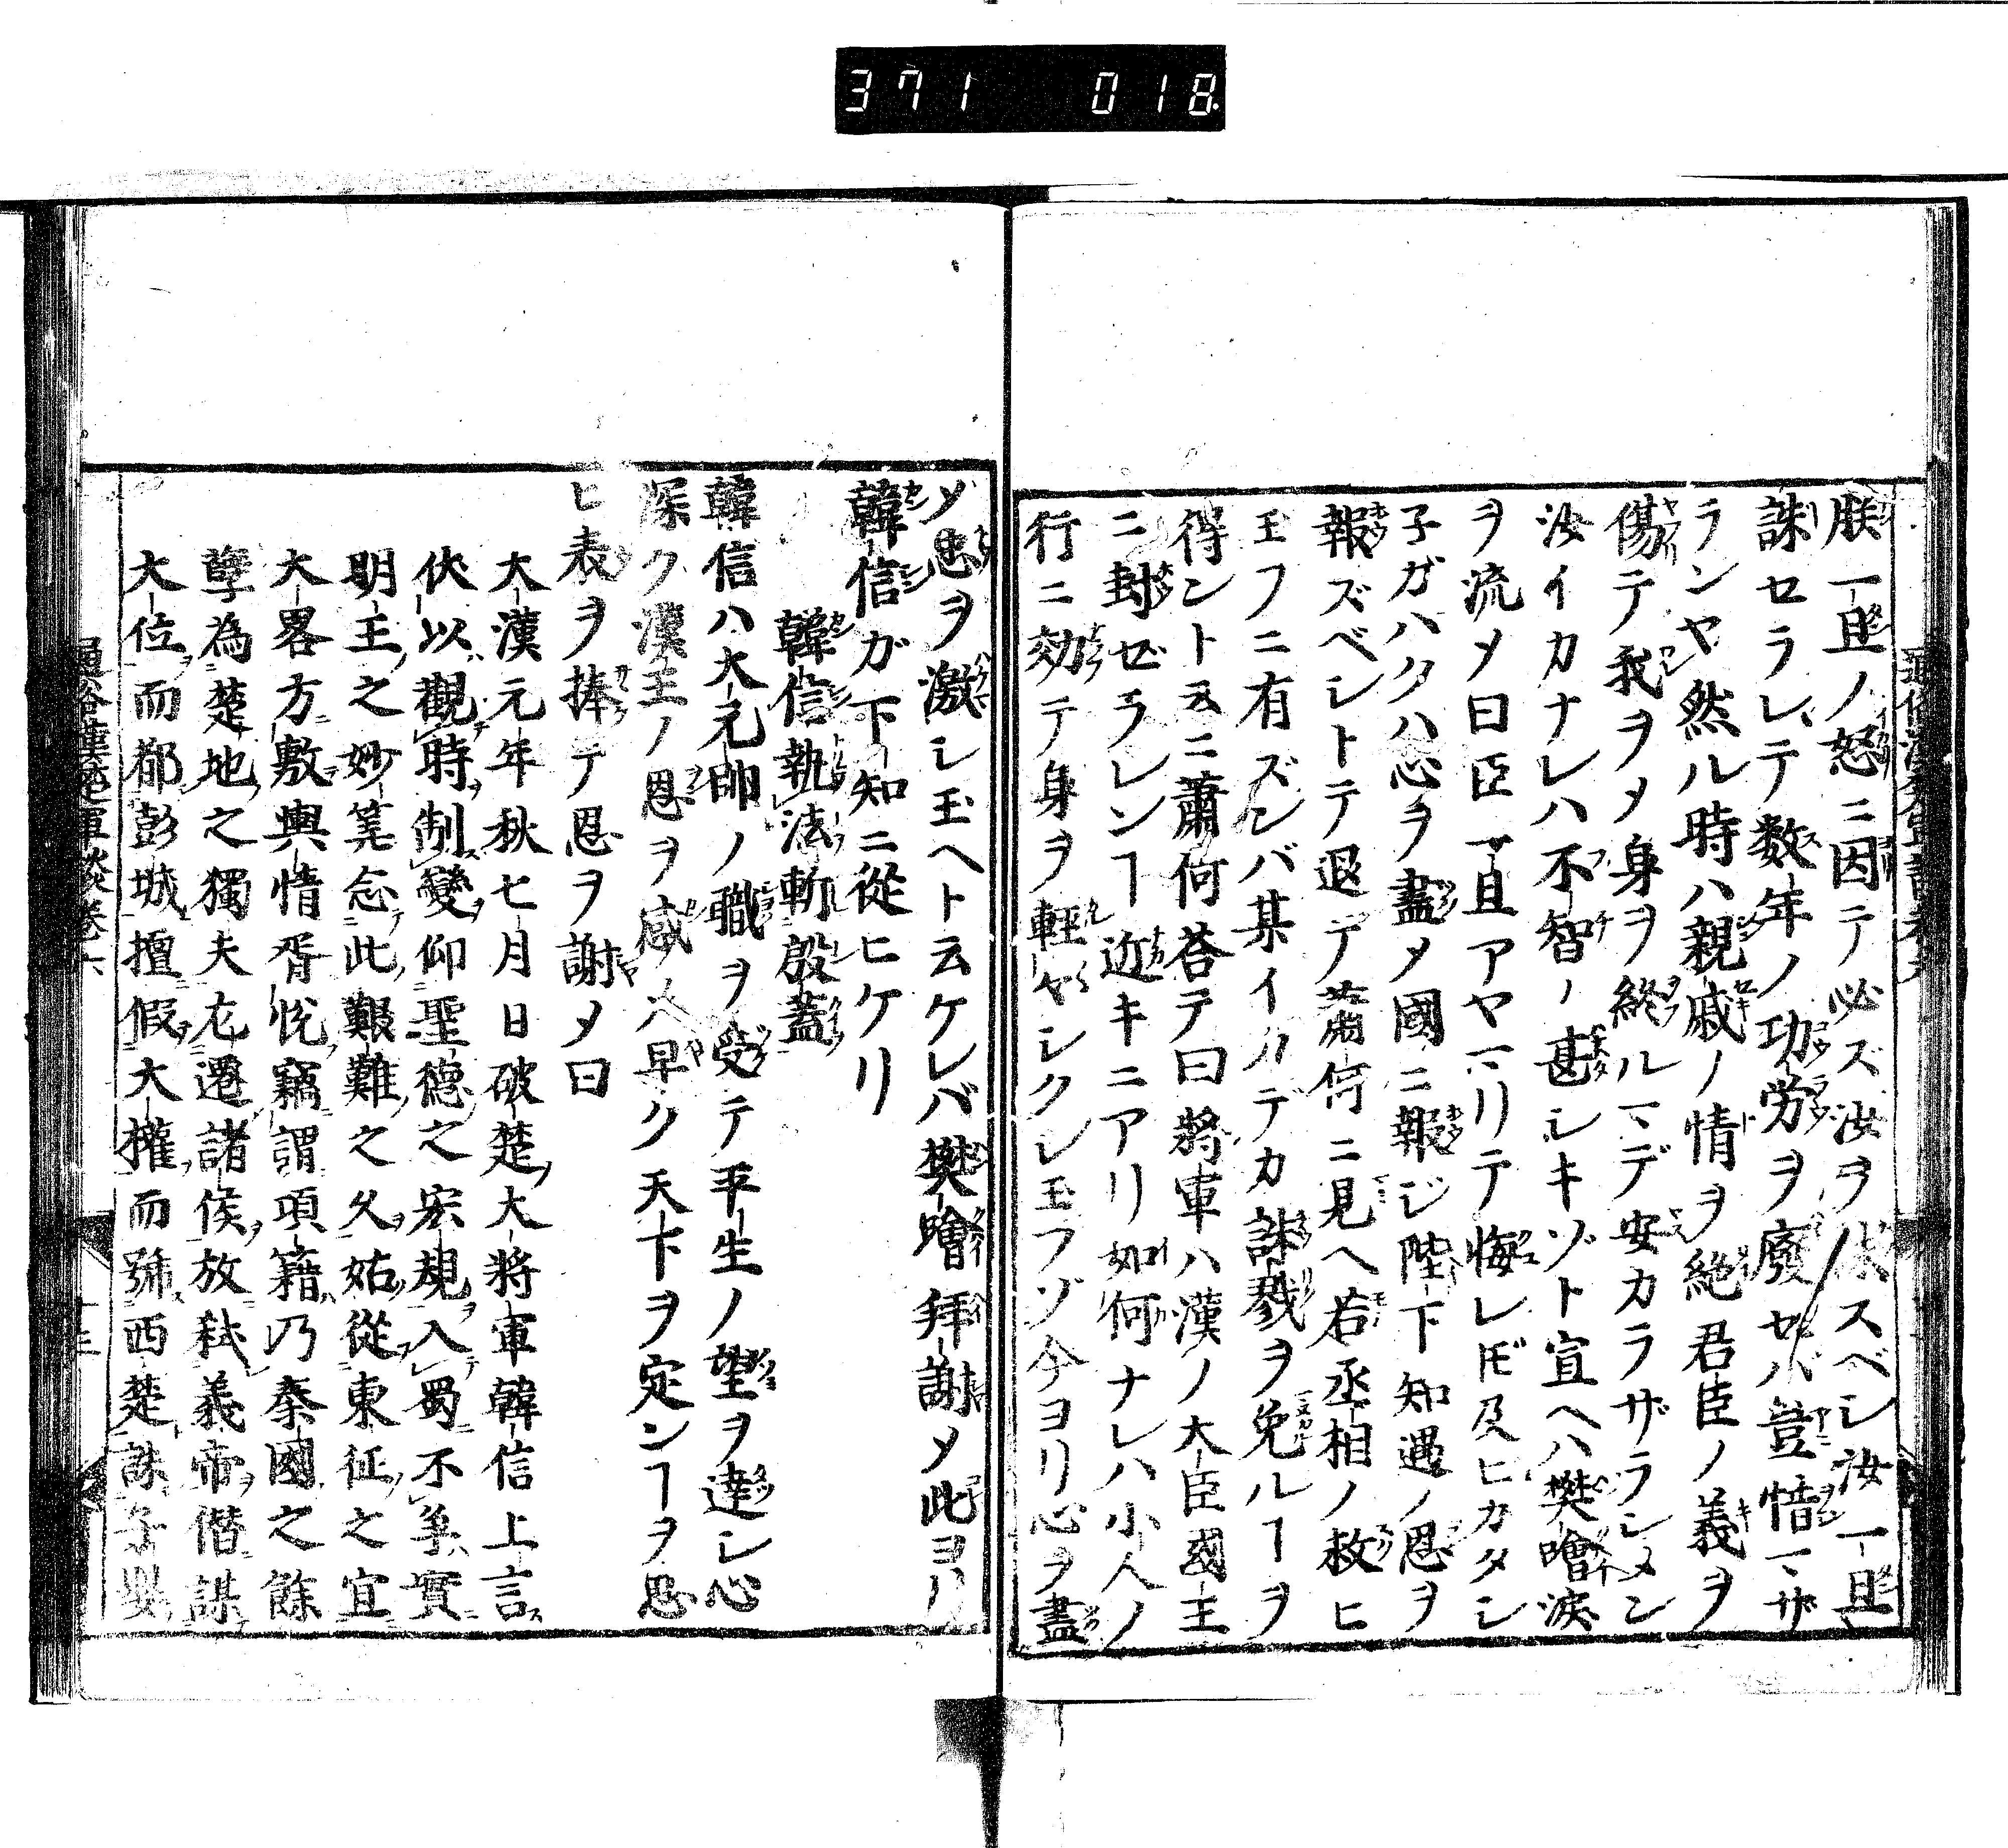 371 018
朕一旦ノ怒ニ因テ必ズ汝ヲ誅スベシ汝一旦
誅セラレテ数年ノ功労ヲ廢セバ豈惜マザ
ランヤ然ル時ハ親戚ノ情ヲ絶君臣ノ義ヲ
傷テ我ヲメ身ヲ終ルマデ安カラザラシメン
汝イカナレハ不智ノ甚シキゾト宣ヘハ樊噲涙
ヲ流メ曰臣一旦アヤマリテ悔レ𪜈及ヒカタシ
子ガハクハ心ヲ盡メ國ニ報ジ陛下知遇ノ恩ヲ
報ズベシトテ退デ蕭何ニ見ヘ若丞相ノ救ヒ
玉フニ有ズンバ某イカデカ誅戮ヲ免ルヿヲ
得ントニ蕭何荅テ曰將軍ハ漢ノ大臣國王
ニ封ゼラレンヿ近キニアリ如何ナレハ小人ノ
行ニ効テ身ヲ軽ヤシクシ玉フゾ今ヨリ心ヲ盡
メ忠ヲ激シ玉ヘト云ケレバ樊噲拜謝メ此ヨリ
韓信ガ下知ニ從ヒケリ
韓信執法斬殷蓋
韓信ハ大元帥ノ職ヲ受テ平生ノ望ヲ達シ心
深ク漢王ノ恩ヲ感メ早ク天下ヲ定ンヿヲ思
ヒ表ヲ捧テ恩ヲ謝メ曰
大漢元年秋七月日破楚大將軍韓信上言
伏以觀時制變仰聖德之宏規入蜀不爭實
明主之妙筭念此艱難之久姑從東征之宜
大畧方敷輿情胥悅竊謂項籍乃秦國之餘
孽為楚地之獨夫尤遷諸侯放弒義帝僭謀
大位而都彭城擅假大權而號西楚誅子嬰
通俗漢楚軍談卷六